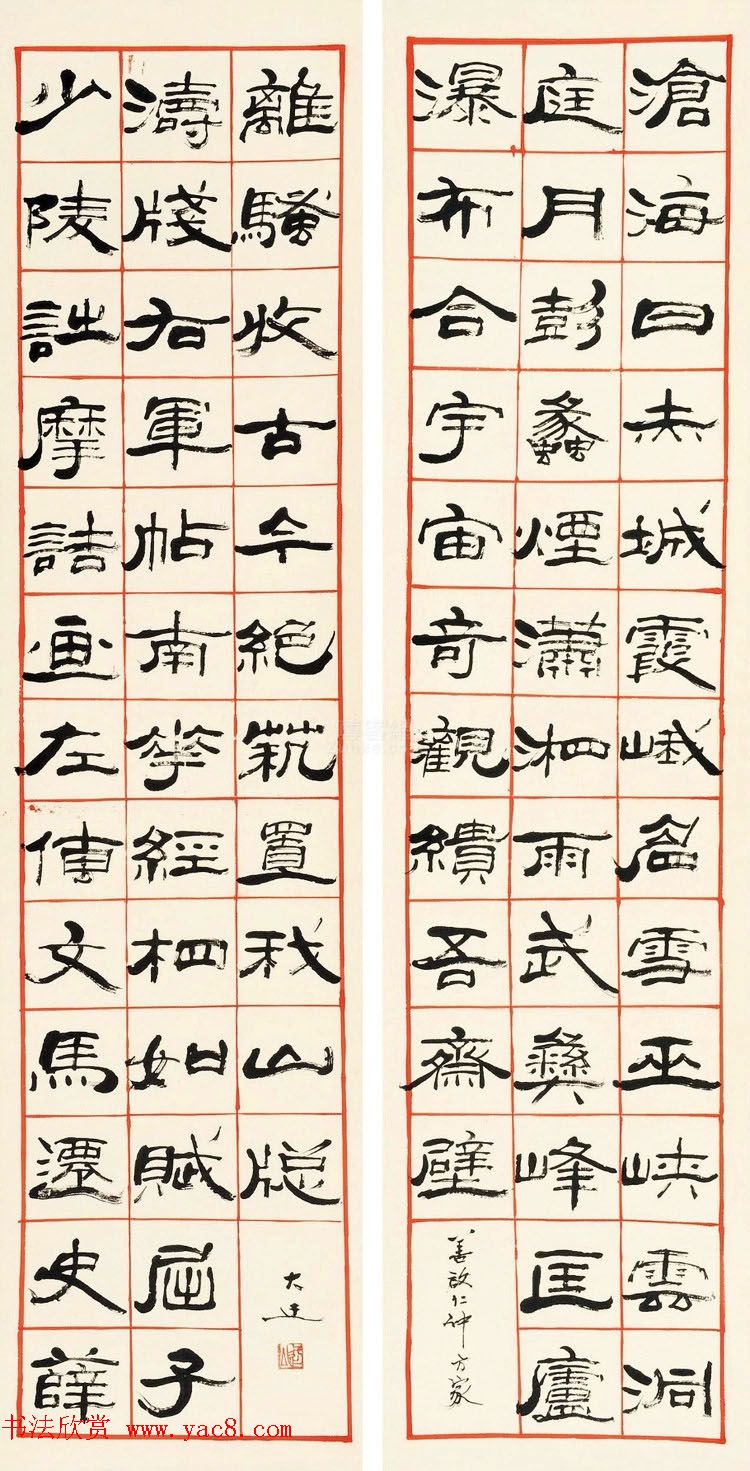 滄海日赤城霞峨嵋雪巫峽雲洞
庭月彭蠡煙瀟湘雨武彝峰匡廬
瀑布合宇宙奇觀繢吾齋壁
仁仲方家
少陵詩摩詰画左傳文馬遷史薛
濤牋右軍帖南華經相如賦屈子
離騷收古今絕藝置我山牕
书法欣赏 www.yac8.com